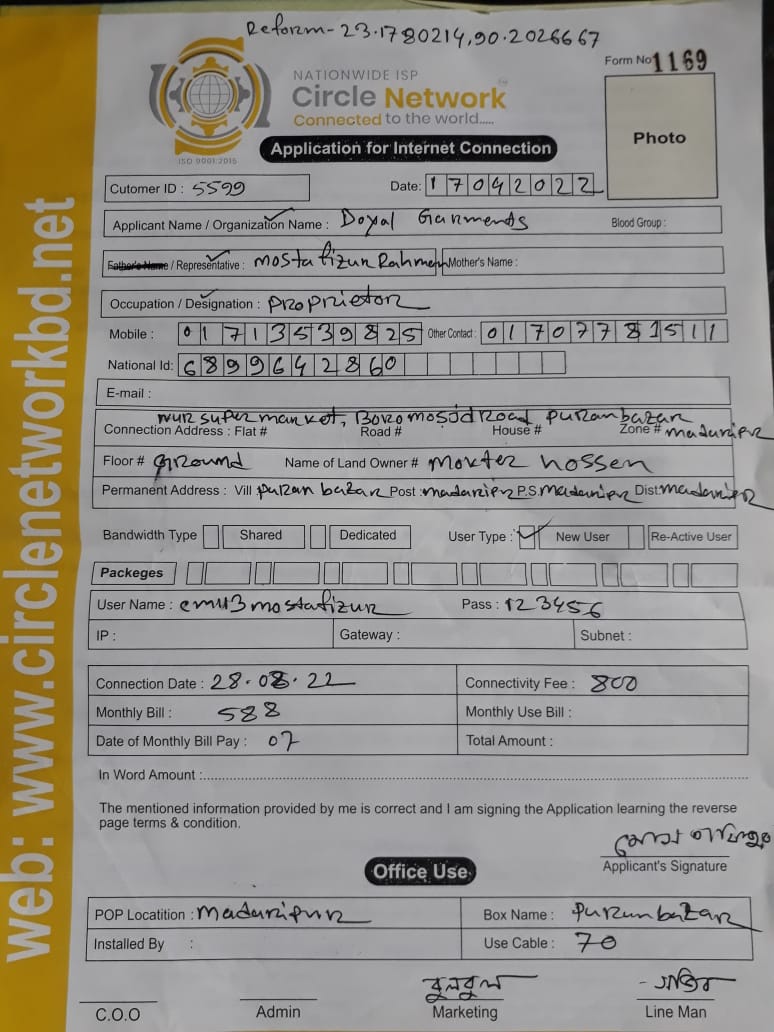 Reform - 23.1780214,90.2026667
Form No 1169
NATIONWIDE ISP
Circle Network
Connected to the world.....
ISO 9001:2015
Photo
Application for Internet Connection
Cutomer ID : 5599 Date: 17042022
Applicant Name / Organization Name : Doyal Garments Blood Group :
Father's Name / Representative : Mostafizur Rahman Mother's Name :
Occupation / Designation : Proprietor
Mobile : 01713539825 Other Contact : 01707781511
National Id: 6899642860
E-mail :
Nur super market, Boro mosjid Road puran bazar
Connection Address : Flat # Road # House # Zone # madaripur
Floor # Ground Name of Land Owner # Mokter hossen
Permanent Address : Vill puran bazar Post : madaripur P.S. madaripur Dist: madaripur
Bandwidth Type Shared Dedicated User Type : New User Re-Active User
Packeges
User Name : cmu3mostafizur Pass : 123456
IP : Gateway : Subnet :
Connection Date : 28.08.22 Connectivity Fee : 800
Monthly Bill : 588 Monthly Use Bill :
Date of Monthly Bill Pay : 07 Total Amount :
In Word Amount :
The mentioned information provided by me is correct and I am signing the Application learning the reverse
page terms & condition.
Applicant's Signature
Office Use
POP Locatition : madaripur Box Name : Puran bazar
Installed By : Use Cable : 70
বুলবুল
C.O.O Admin Marketing Line Man
web: www.circlenetworkbd.net